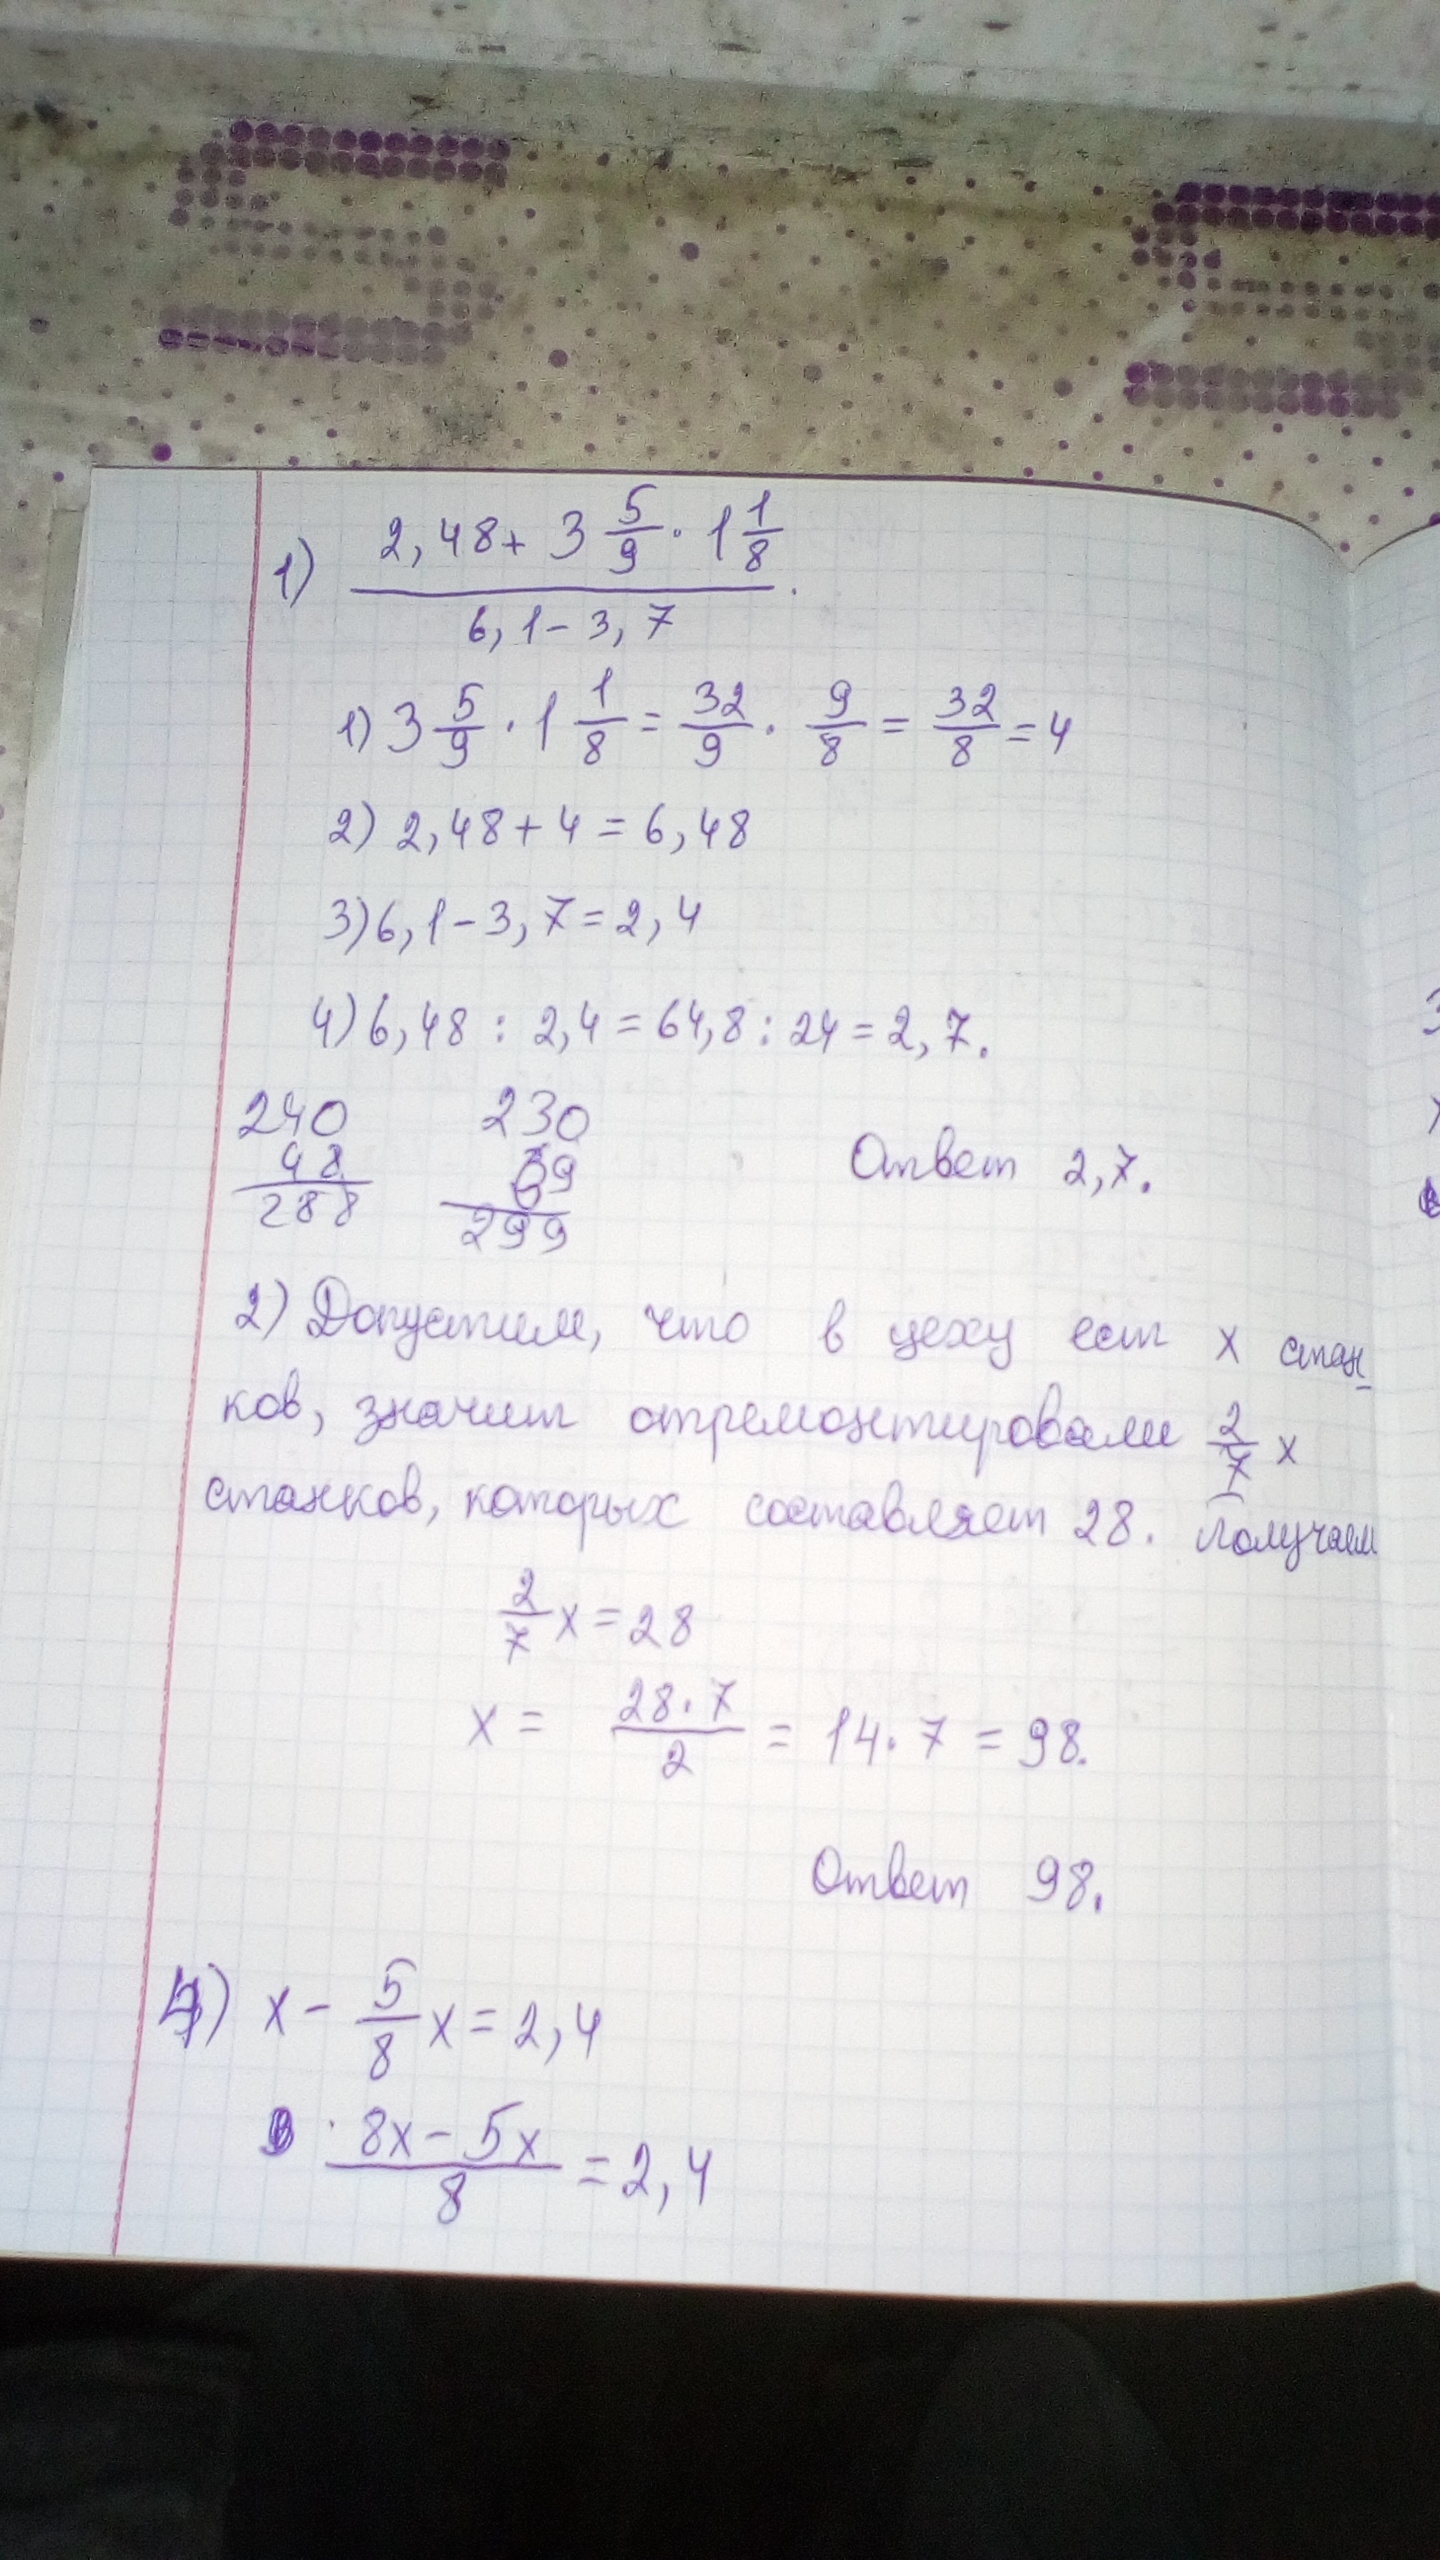 1) (2,48+ 3 5/9 · 1 1/8) / (6,1-3,7).
1) 3 5/9 · 1 1/8 = 32/9 · 9/8 = 32/8 = 4
2) 2,48+4=6,48
3) 6,1-3,7=2,4
4) 6,48 : 2,4=64,8:24=2,7.
240 230
48 69
288 299
Ответ 2,7.
2) Допустим, что в цеху есть х стан-
ков, значит отремонтировали 2/7 х
станков, которых составляет 28. Получаем
2/7 х = 28
х = 28·7/2 = 14·7 = 98.
Ответ 98.
4) х - 5/8 х = 2,4
(8х - 5х)/8 = 2,4